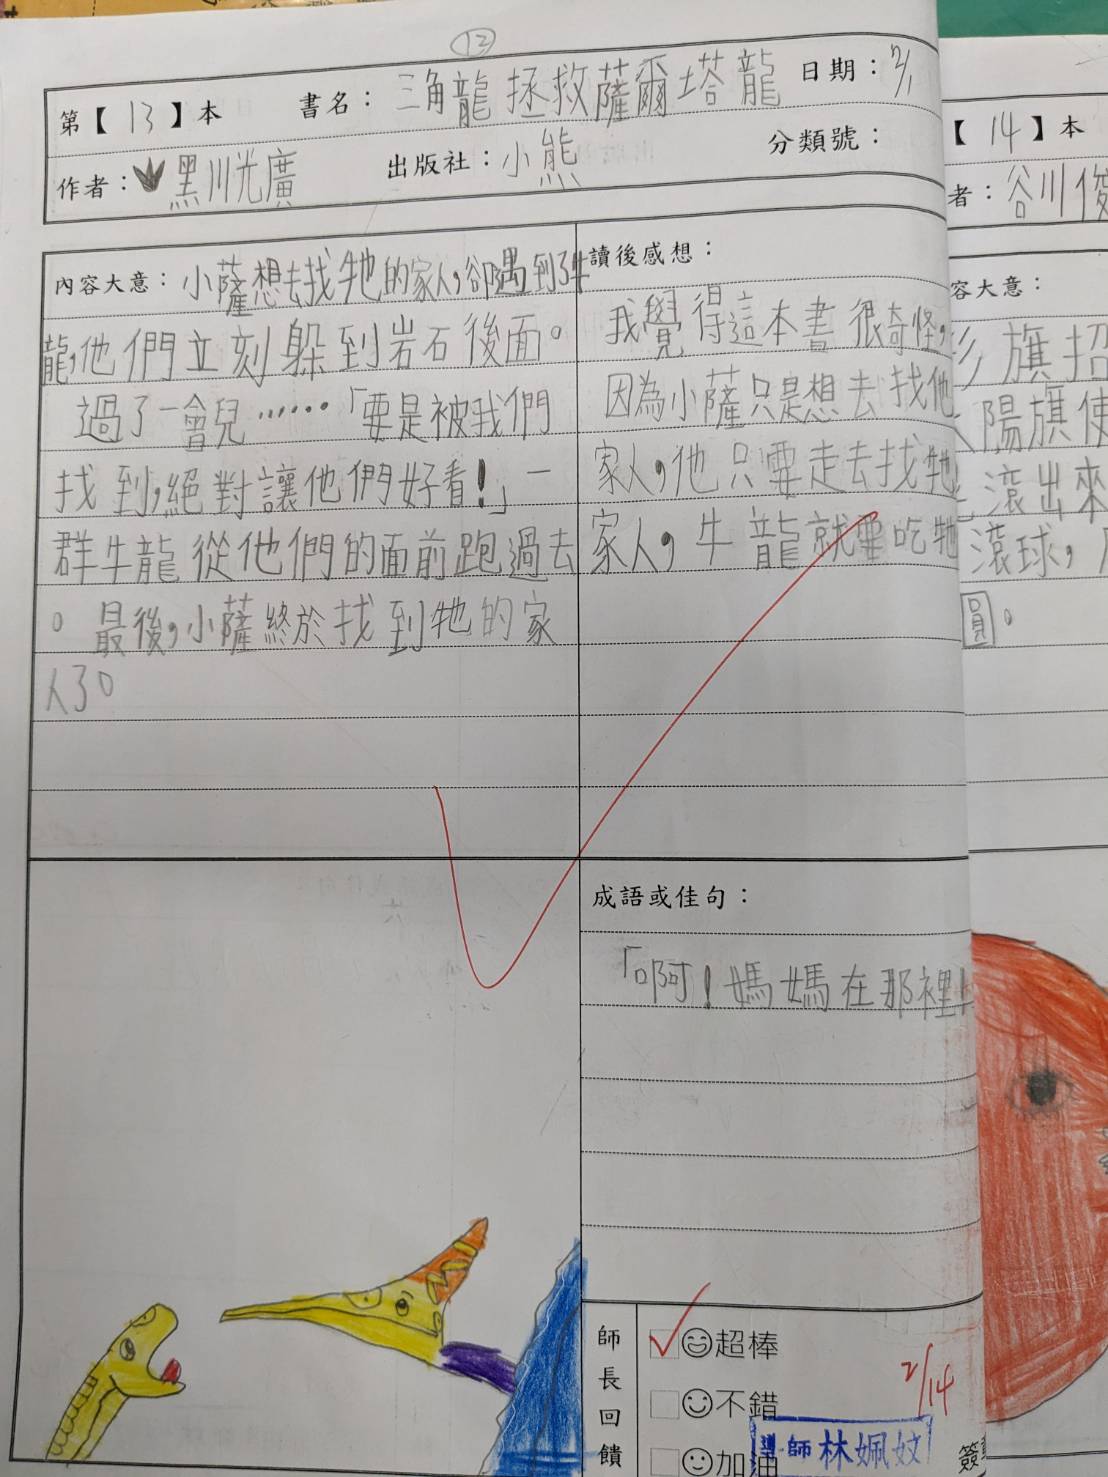 13
第【13】本 書名：三角龍拯救薩爾塔龍 日期：2/1
作者：黑川光廣 出版社：小熊 分類號：
內容大意：小薩想去找牠的家人，卻遇到了牛
龍，他們立刻躲到岩石後面。
過了一會兒……「要是被我們
找到，絕對讓他們好看！」一
群牛龍從他們的面前跑過去
。最後，小薩終於找到牠的家
人了。
讀後感想：
我覺得這本書很奇怪，
因為小薩只是想去找他
家人，他只要走去找牠
家人，牛龍就要吃牠
成語或佳句：
「啊！媽媽在那裡！
師長回饋
超棒
不錯
加油
2/14
導師林姵妏
【14】本
者：谷川俊
容大意：
旗招
陽旗使
滾出來
滾球，
圓。
簽